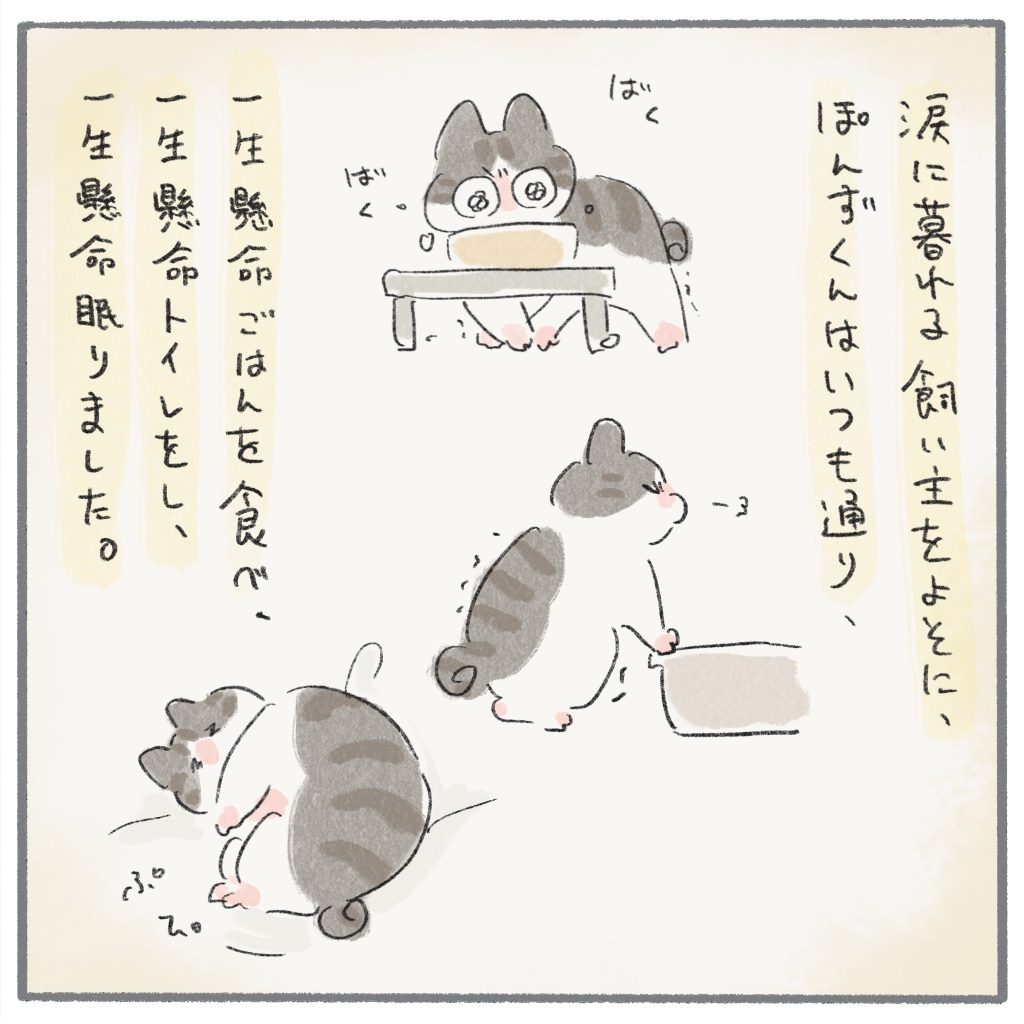 涙に暮れる飼い主をよそに、
ぽんずくんはいつも通り、
ばく
ばく
一生懸命ごはんを食べ、
一生懸命トイレをし、
一生懸命眠りました。
ー３
ぷぴ